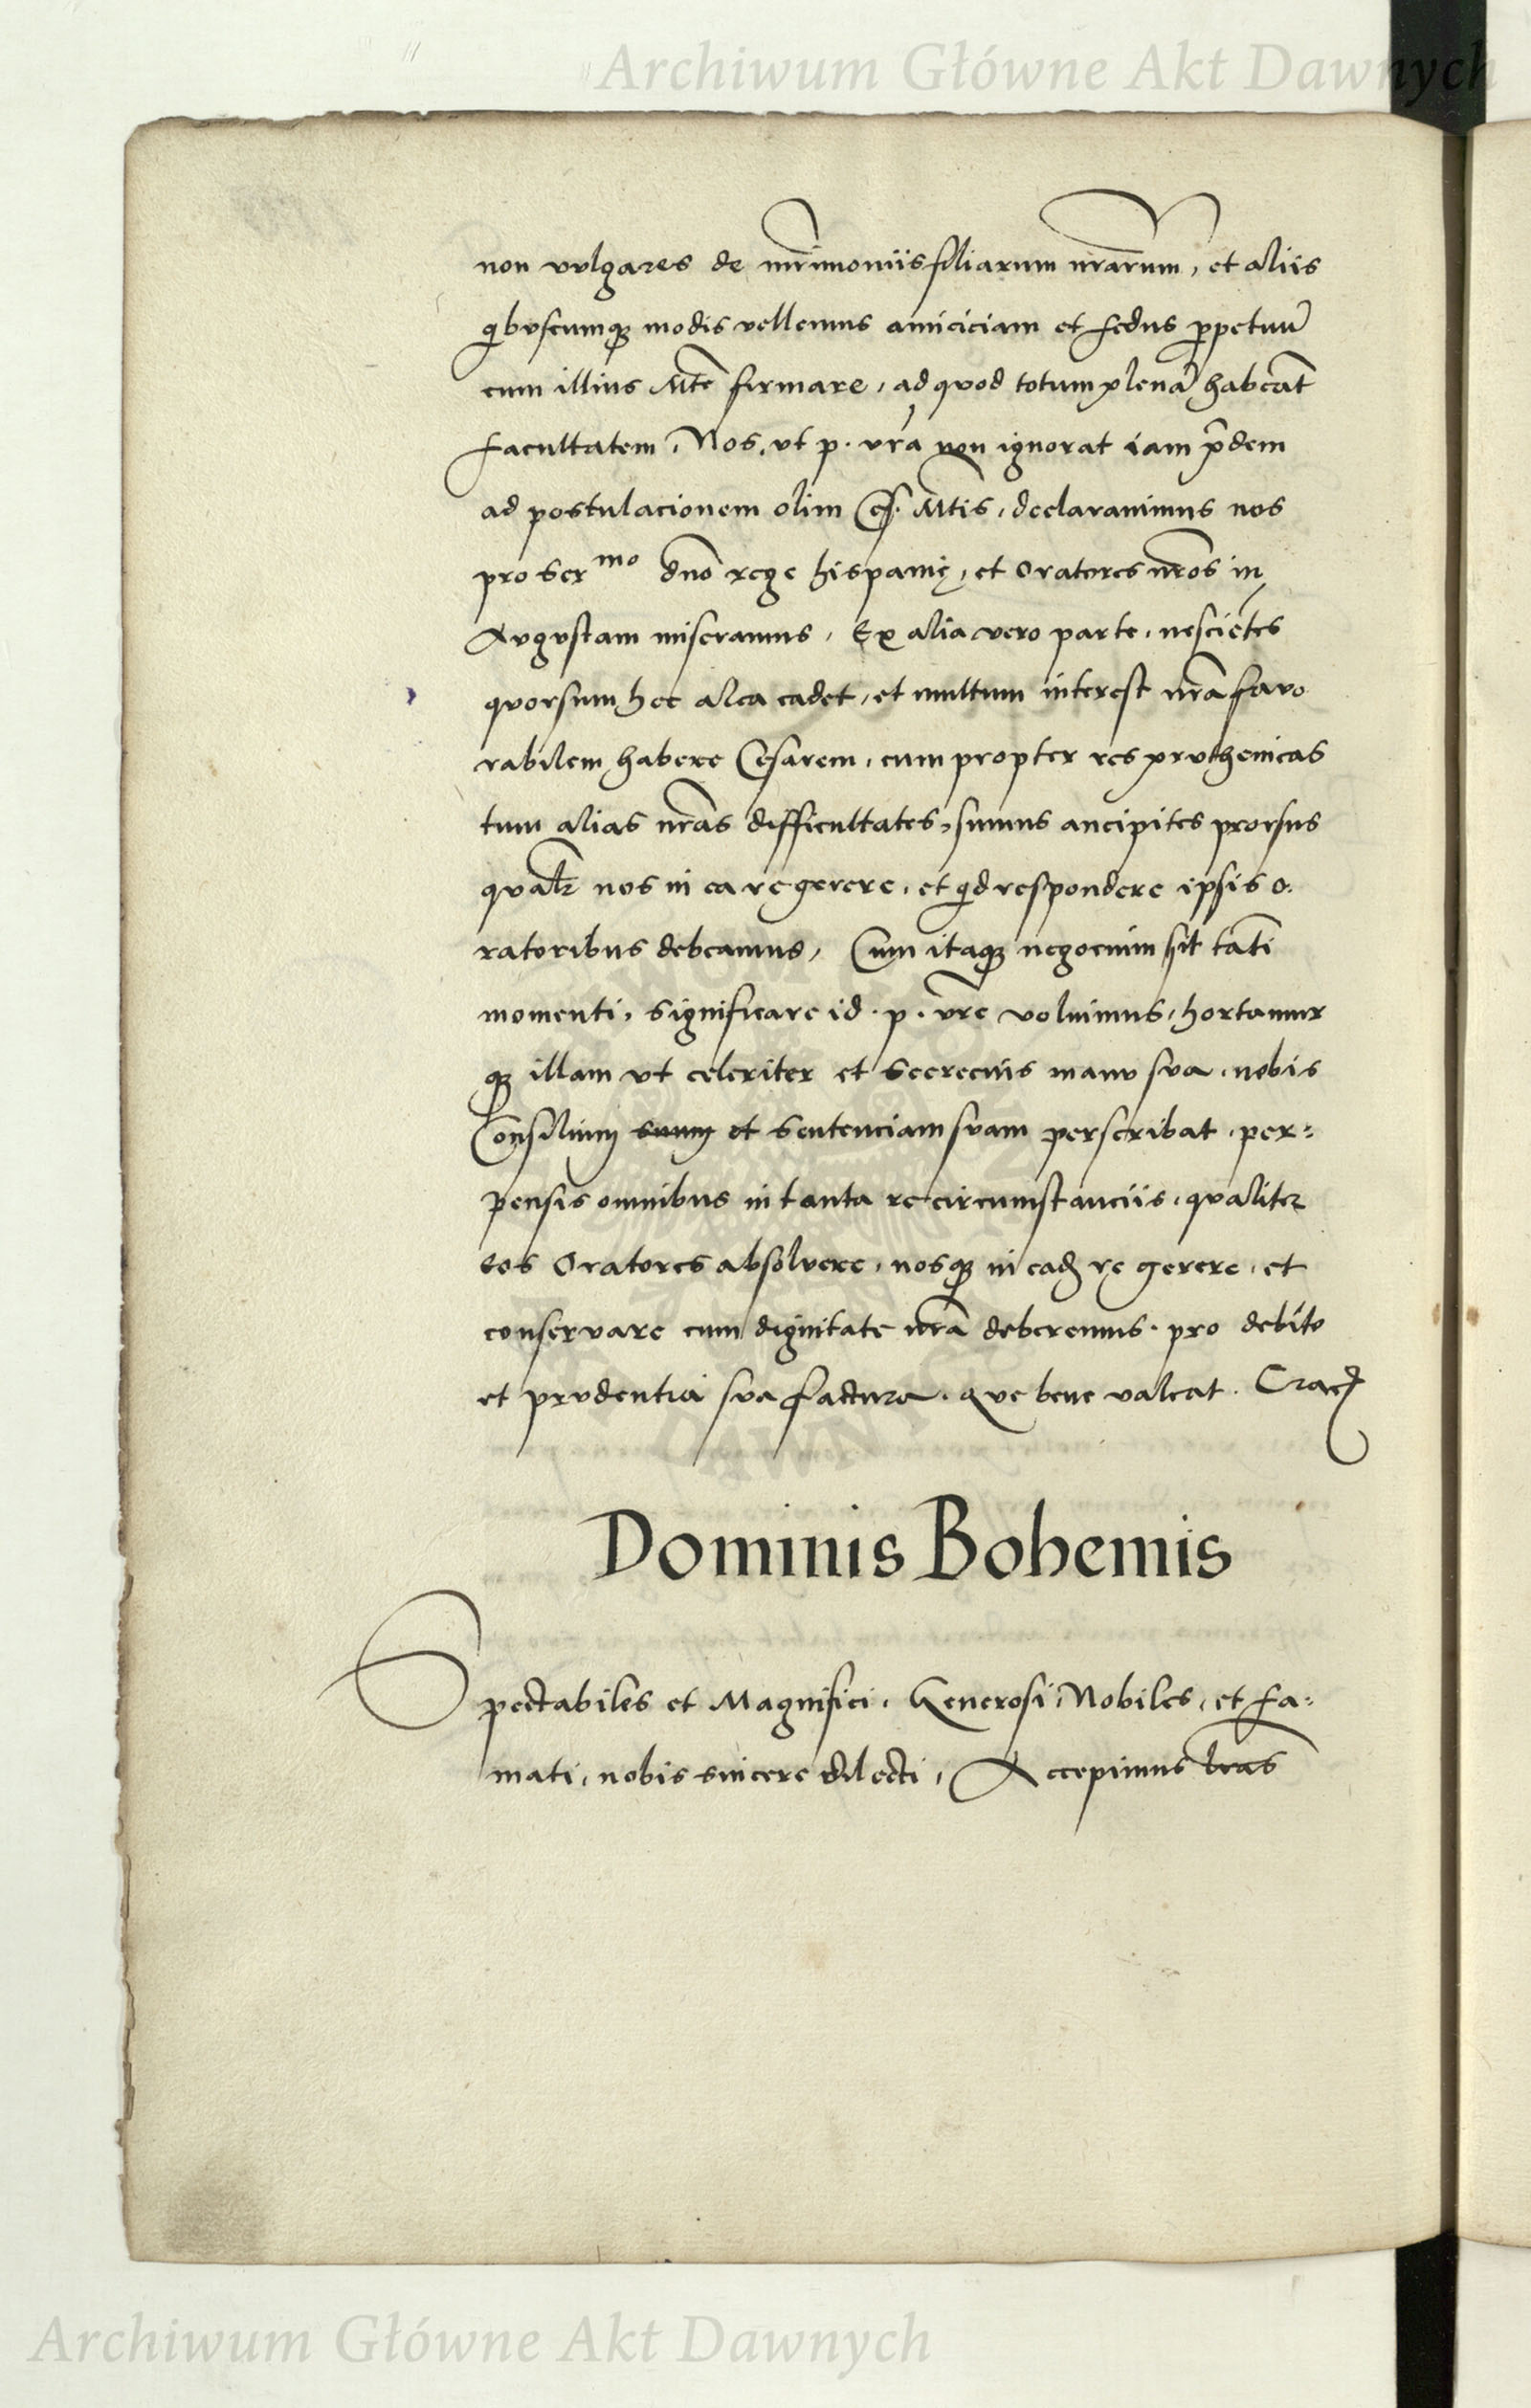 Archiwum Główne Akt Dawnych
non vulgares de mr̃imoniis filiarum nr̃arum, et aliis
qibuscumqȝ modis vellemus amiciciam et fedus ꝑpetuũ
cum illius Mte᷉ firmare, ad quod totum plenã habeãt
facultatem, Nos, ut p. vr̃a non ignorat iam p̃dem
ad postulacionem olim Ces. Mt̃is, declaravimus nos
pro Ser mo dno᷉ rege hispanię, et Oratores nr̃os in
Augustam miseramus, Ex alia vero parte, nesciẽtes
quorsum hec alea cadet, et multum interest nr̃a favo
rabilem habere Cesarem, cum propter res pruthenicas
tum alias nr̃as difficultates, sumus ancipites prorsus
qualr̃ nos in ea re gerere, et qid respondere ipsis o.
ratoribus debeamus, Cum itaqȝ negocium sit tãti
momenti, significare id . p . vr̃e voluimus, hortamur
qȝ illam ut celeriter et secrecius manu sua, nobis
Consilium suum et sentenciam suam perscribat, per:
pensis omnibus in tanta re circumstanciis, qualiter
eos Oratores absolvere, nosqȝ in eadȝ re gerere, et
conservare cum dignitate nr̃a deberemus. pro debito
et prudentia sua factura. Que bene valeat. Crac̃
Dominis Bohemis
Spectabiles et Magnifici. Generosi, Nobiles, et fa:
mati, nobis sincere dilecti, Accepimus lr̃as
Archiwum Główne Akt Dawnych